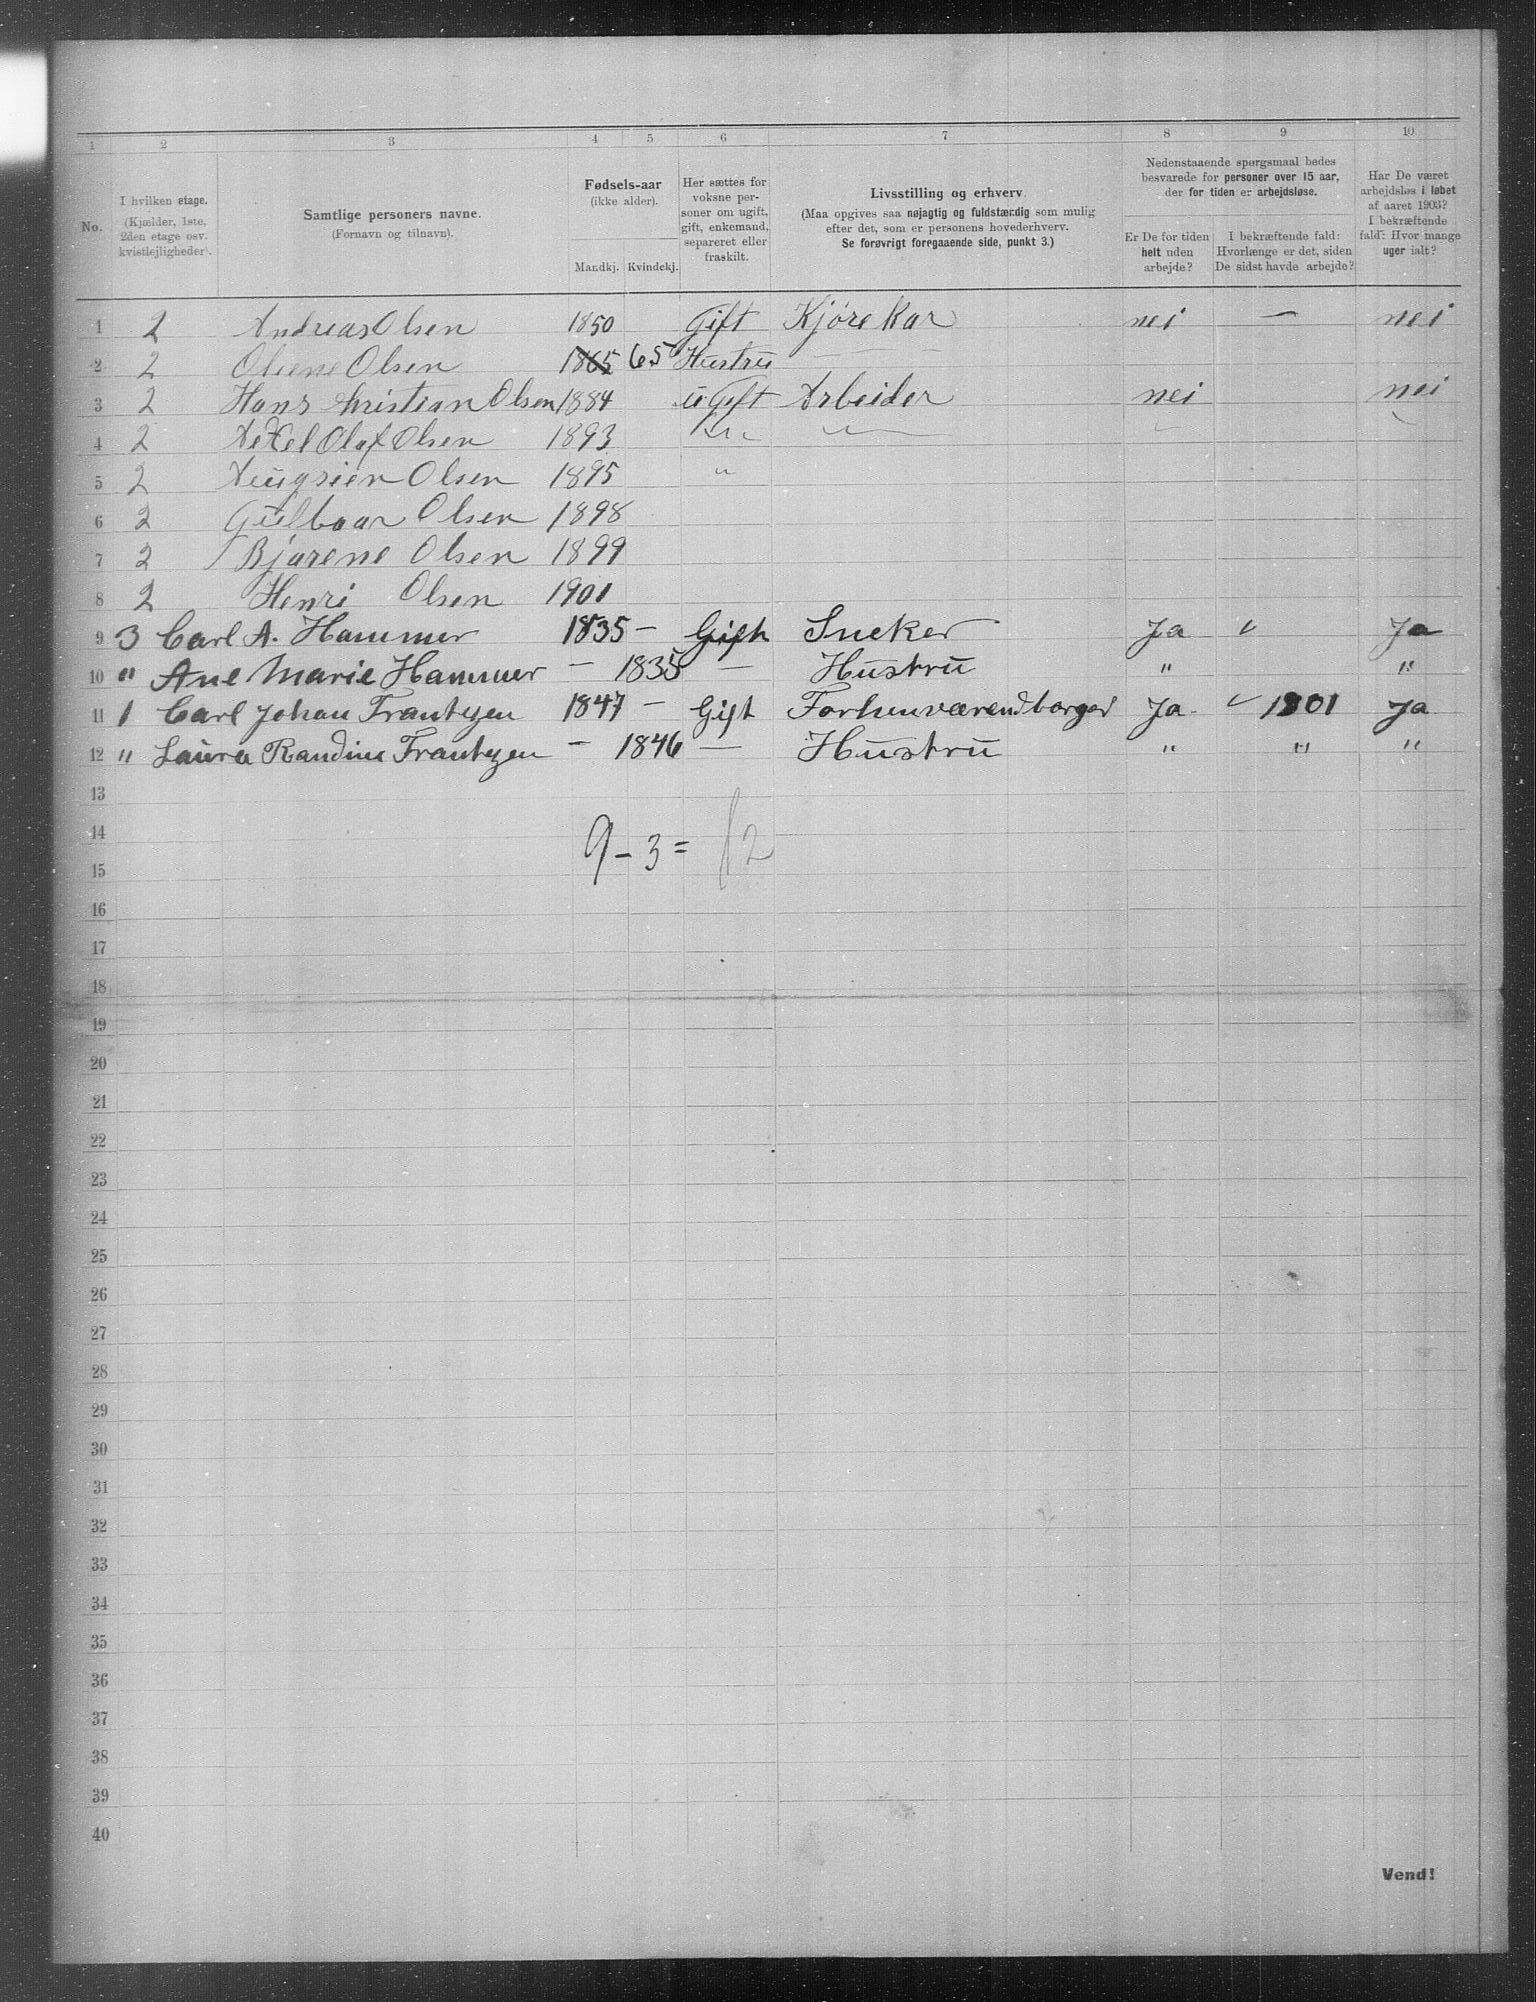 1 2 3 4 5 6 7 8 9 10
No. I hvilken etage. (Kjælder, 1ste, 2den etage osv. kvistlejligheder). Samtlige personers navne. (Fornavn og tilnavn). Fødsels-aar (ikke alder). Mandkj. Kvindekj. Her sættes for voksne personer om ugift, gift, enkemand, separeret eller fraskilt. Livsstilling og erhverv. (Maa opgives saa nøjagtig og fuldstændig som mulig efter det, som er personens hovederhverv. Se forøvrigt foregaaende side, punkt 3.) Nedenstaaende spørgsmaal bedes besvarede for personer over 15 aar, der for tiden er arbejdsløse. Er De for tiden helt uden arbejde? I bekræftende fald: Hvorlænge er det, siden De sidst havde arbejde? Har De været arbejdsløs i løbet af aaret 1903? I bekræftende fald: Hvor mange uger ialt?
1 2 Andreas Olsen 1850 Gift Kjørekar nei — nei
2 2 Olene Olsen 1865 65 Hustru
3 2 Hans Christian Olsen 1884 uGift Arbeider nei nei
4 2 Axel Olaf Olsen 1893
5 2 Olsen 1895 "
6 2 Olsen 1898
7 2 Bjarene Olsen 1899
8 2 Henri Olsen 1901
9 3 Carl A. Hammer 1835 — Gift Sneker Ja Ja
10 " Ane Marie Hammer — 1835 — Hustru " "
11 1 Carl Johan Frantzen 1847 — Gift Forhenværendborger Ja 1901 Ja
12 " Laura Randine Frantzen — 1846 — Hustru " " "
13
14
9 – 3 = 12
15
16
17
18
19
20
21
22
23
24
25
26
27
28
29
30
31
32
33
34
35
36
37
38
39
40
Vend!